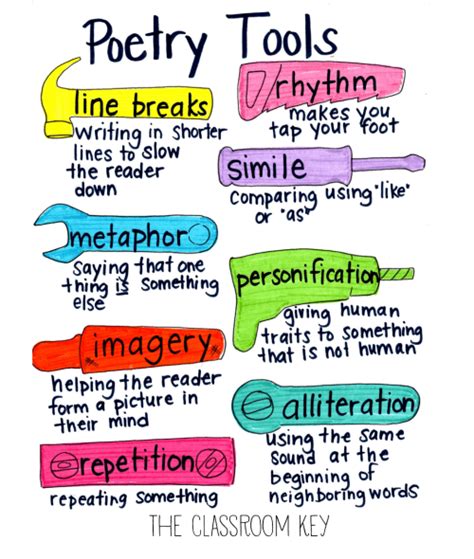 Poetry Tools
line breaks
writing in shorter
lines to slow
the reader
down
rhythm
makes you
tap your foot
simile
Comparing using "like"
or "as"
metaphor
saying that one
thing is something
else
personification
giving human
traits to something
that is not human
imagery
helping the reader
form a picture in
their mind
alliteration
using the same
sound at the
beginning of
neighboring words
repetition
repeating something
THE CLASSROOM KEY